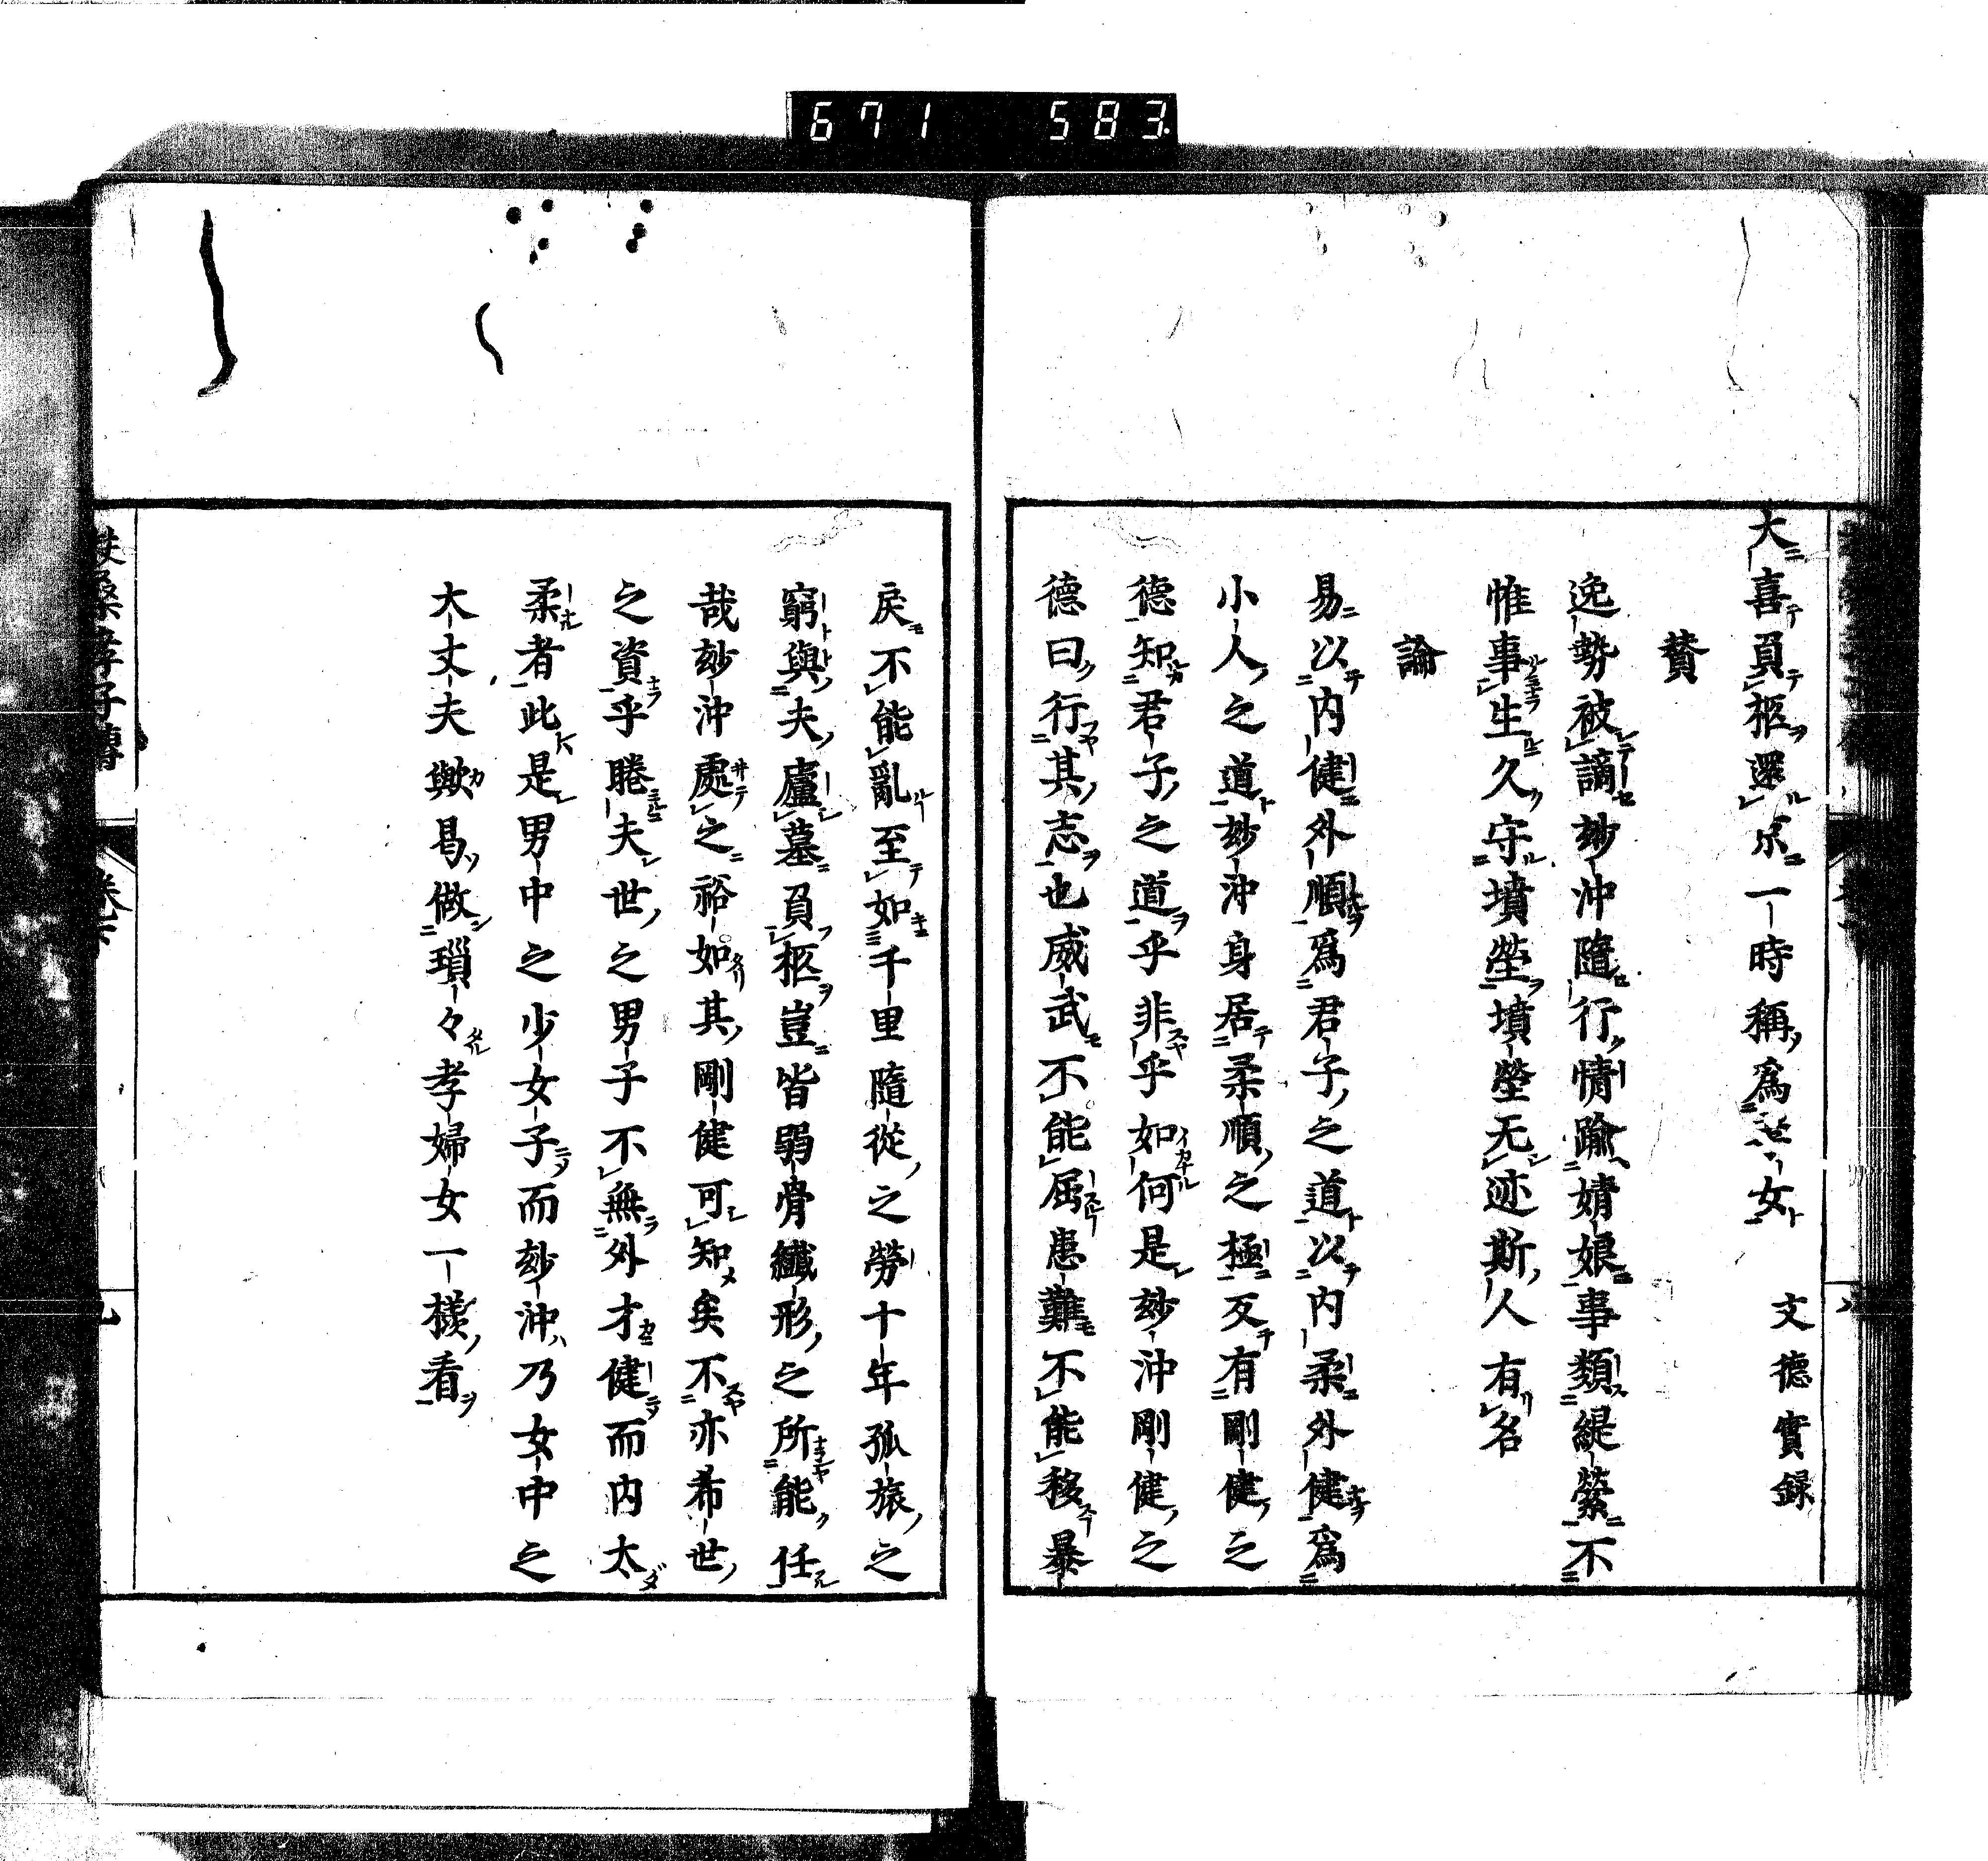 671 583
大喜負柩還京一時稱為孝女 文德實録
贊
逸勢被謫玅沖隨行情踰婧娘事類緹縈不
惟事生久守墳塋墳塋无迹斯人有名
論
易以内健外順為君子之道以内柔外健為
小人之道玅沖身居柔順之極又有剛健之
德知君子之道乎非乎如何是玅沖剛健之
德曰行其志也威武不能屈患難不能移暴
戾不能亂至如千里隨從之勞十年孤旅之
窮與夫廬墓負柩豈皆弱骨纖形之所能任
哉玅沖處之裕如其剛健可知矣不亦希世
之資乎睠夫世之男子不無外才健而内太
柔者此是男中之少女子而玅沖乃女中之
大丈夫歟曷做瑣々孝婦女一様看
扶桑孝子傳 卷下 九